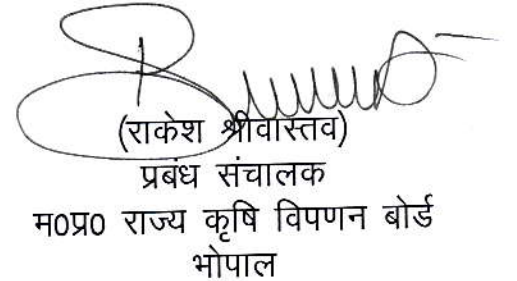 (राकेश श्रीवास्तव)
प्रबंध संचालक
म०प्र० राज्य कृषि विपणन बोर्ड
भोपाल